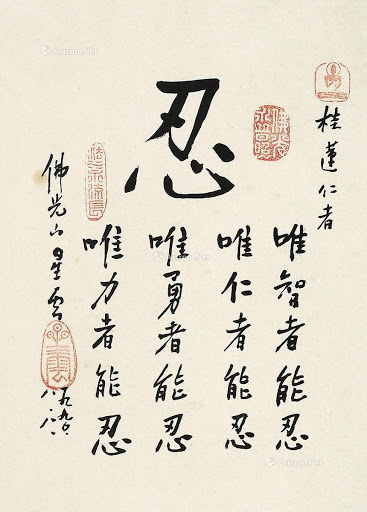 桂蓮仁者
忍
唯智者能忍
唯仁者能忍
唯勇者能忍
唯力者能忍
佛光山星雲